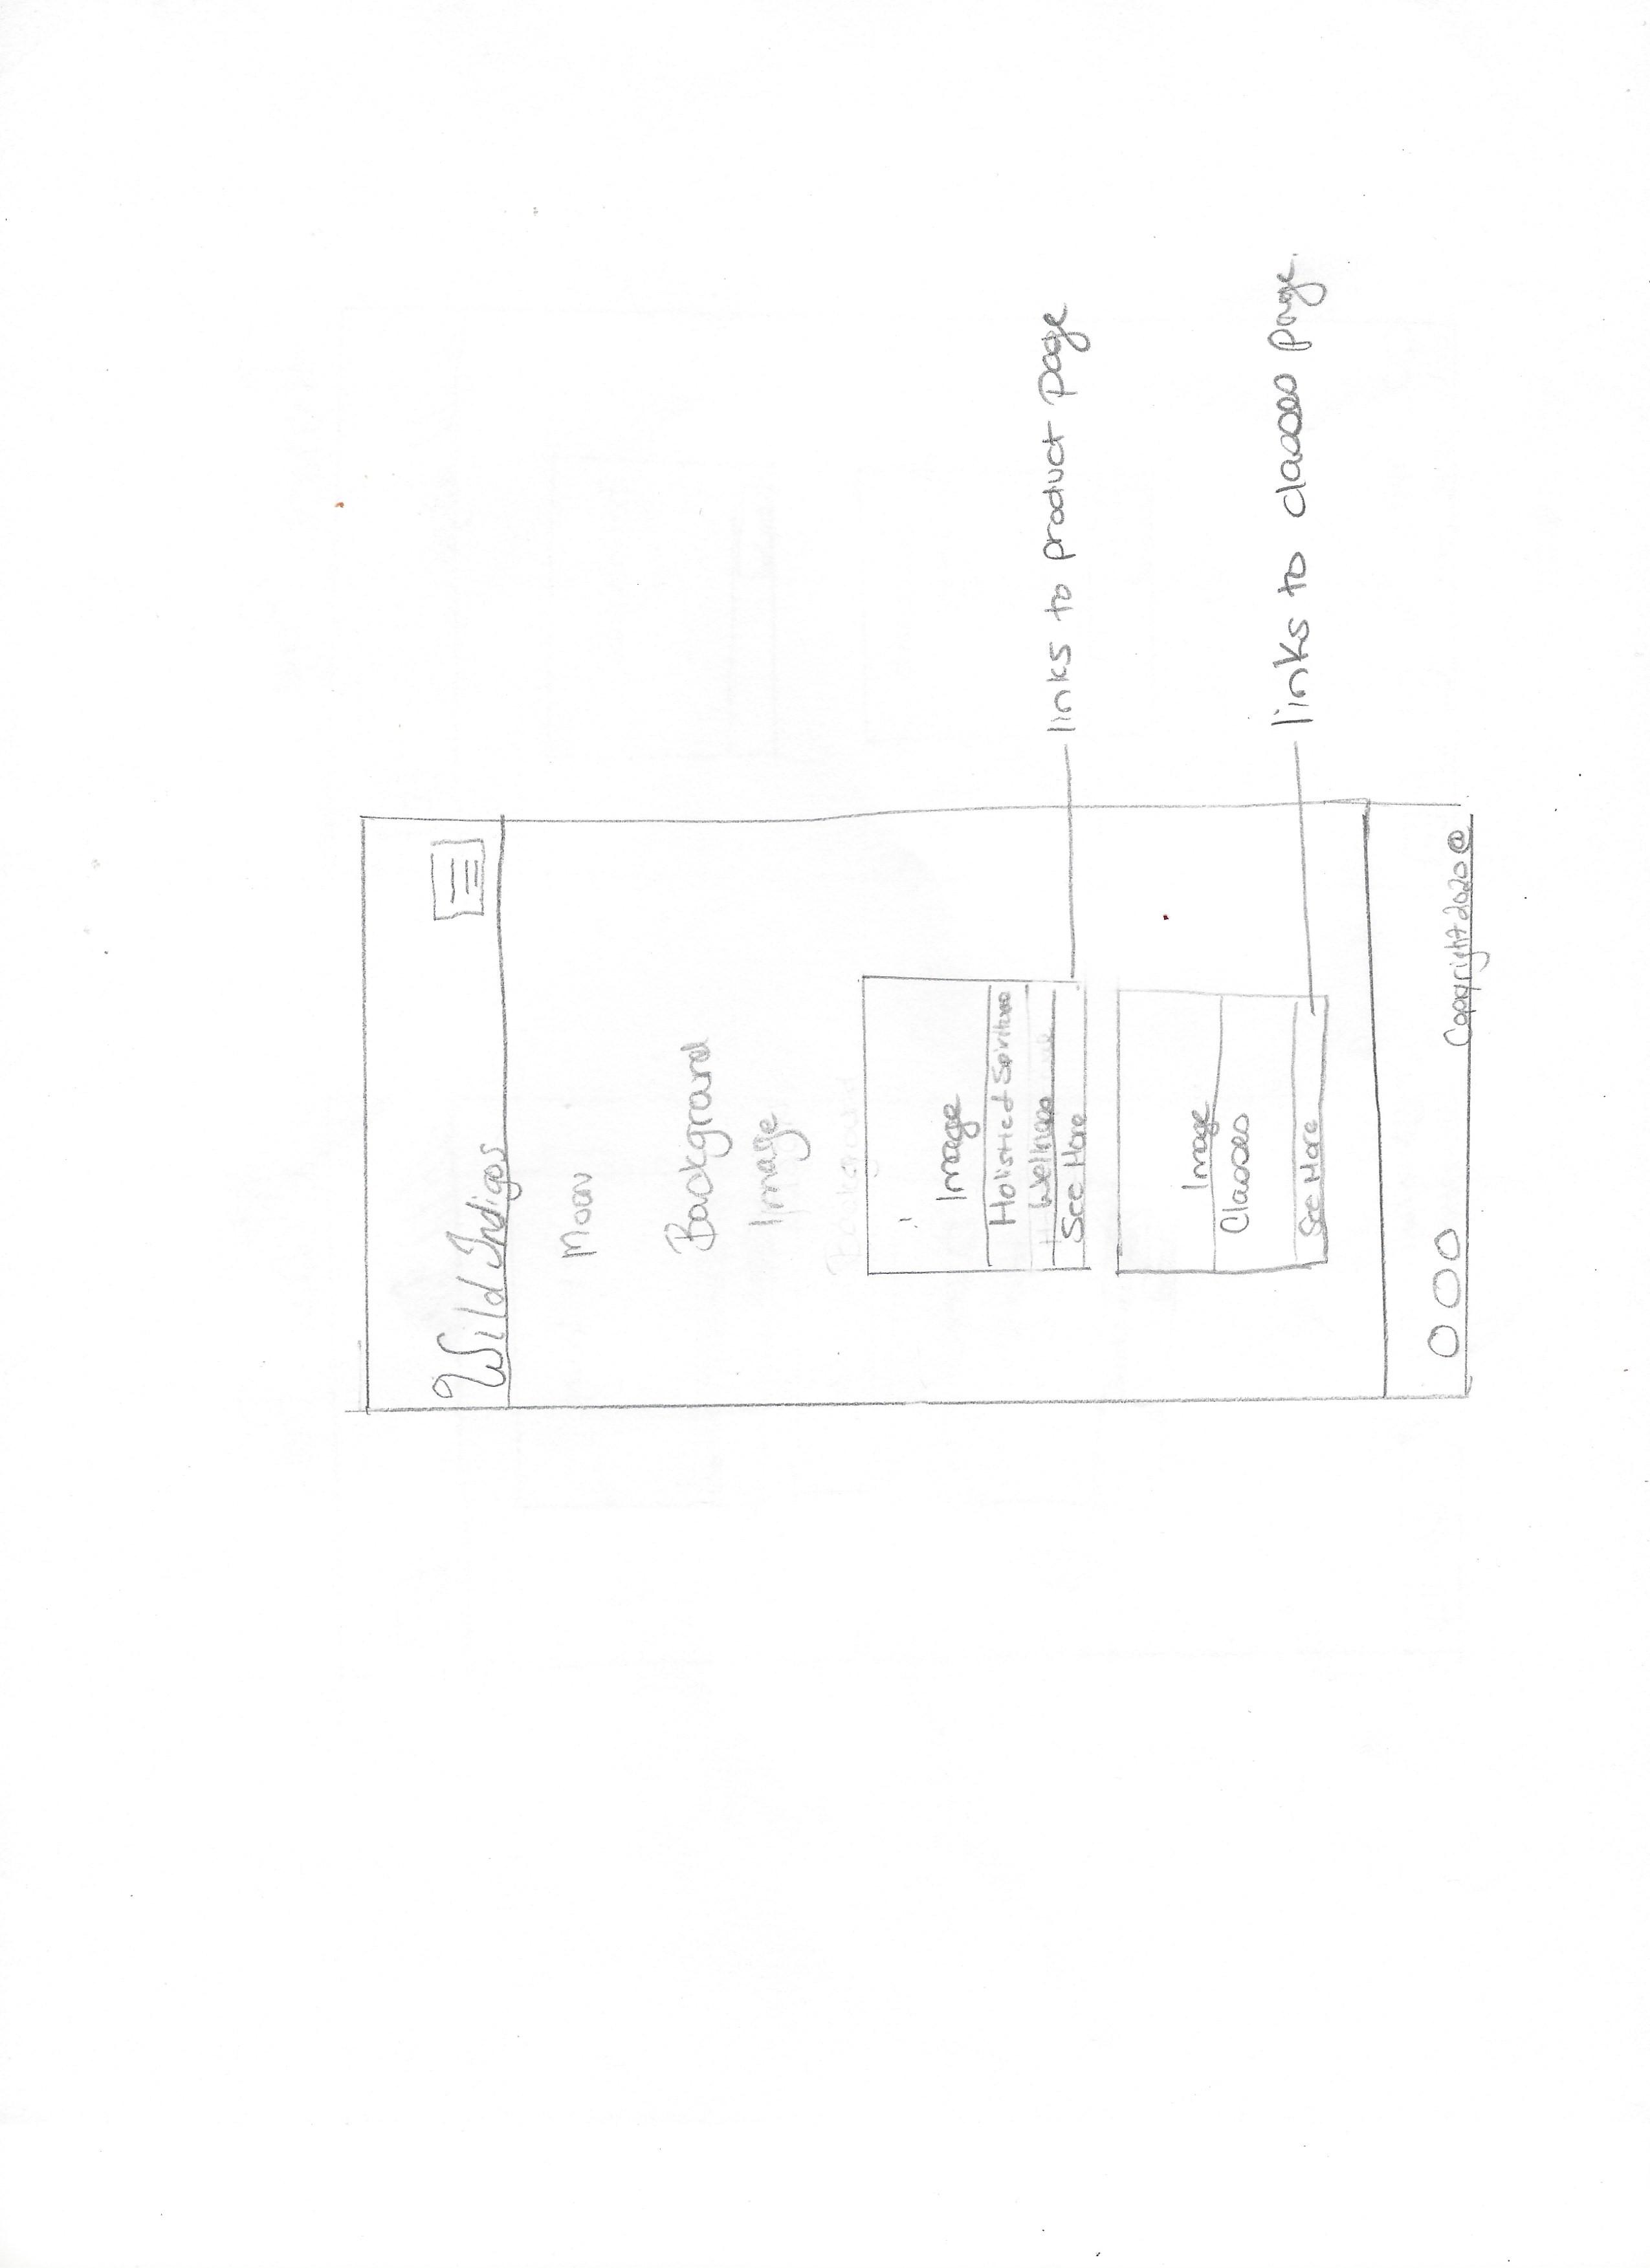 Wild Indigos
Moon
Background
Image
Image
Wellness
See More
links to product page
Image
Classes
See More
links to classes page.
Copyright 2020 @